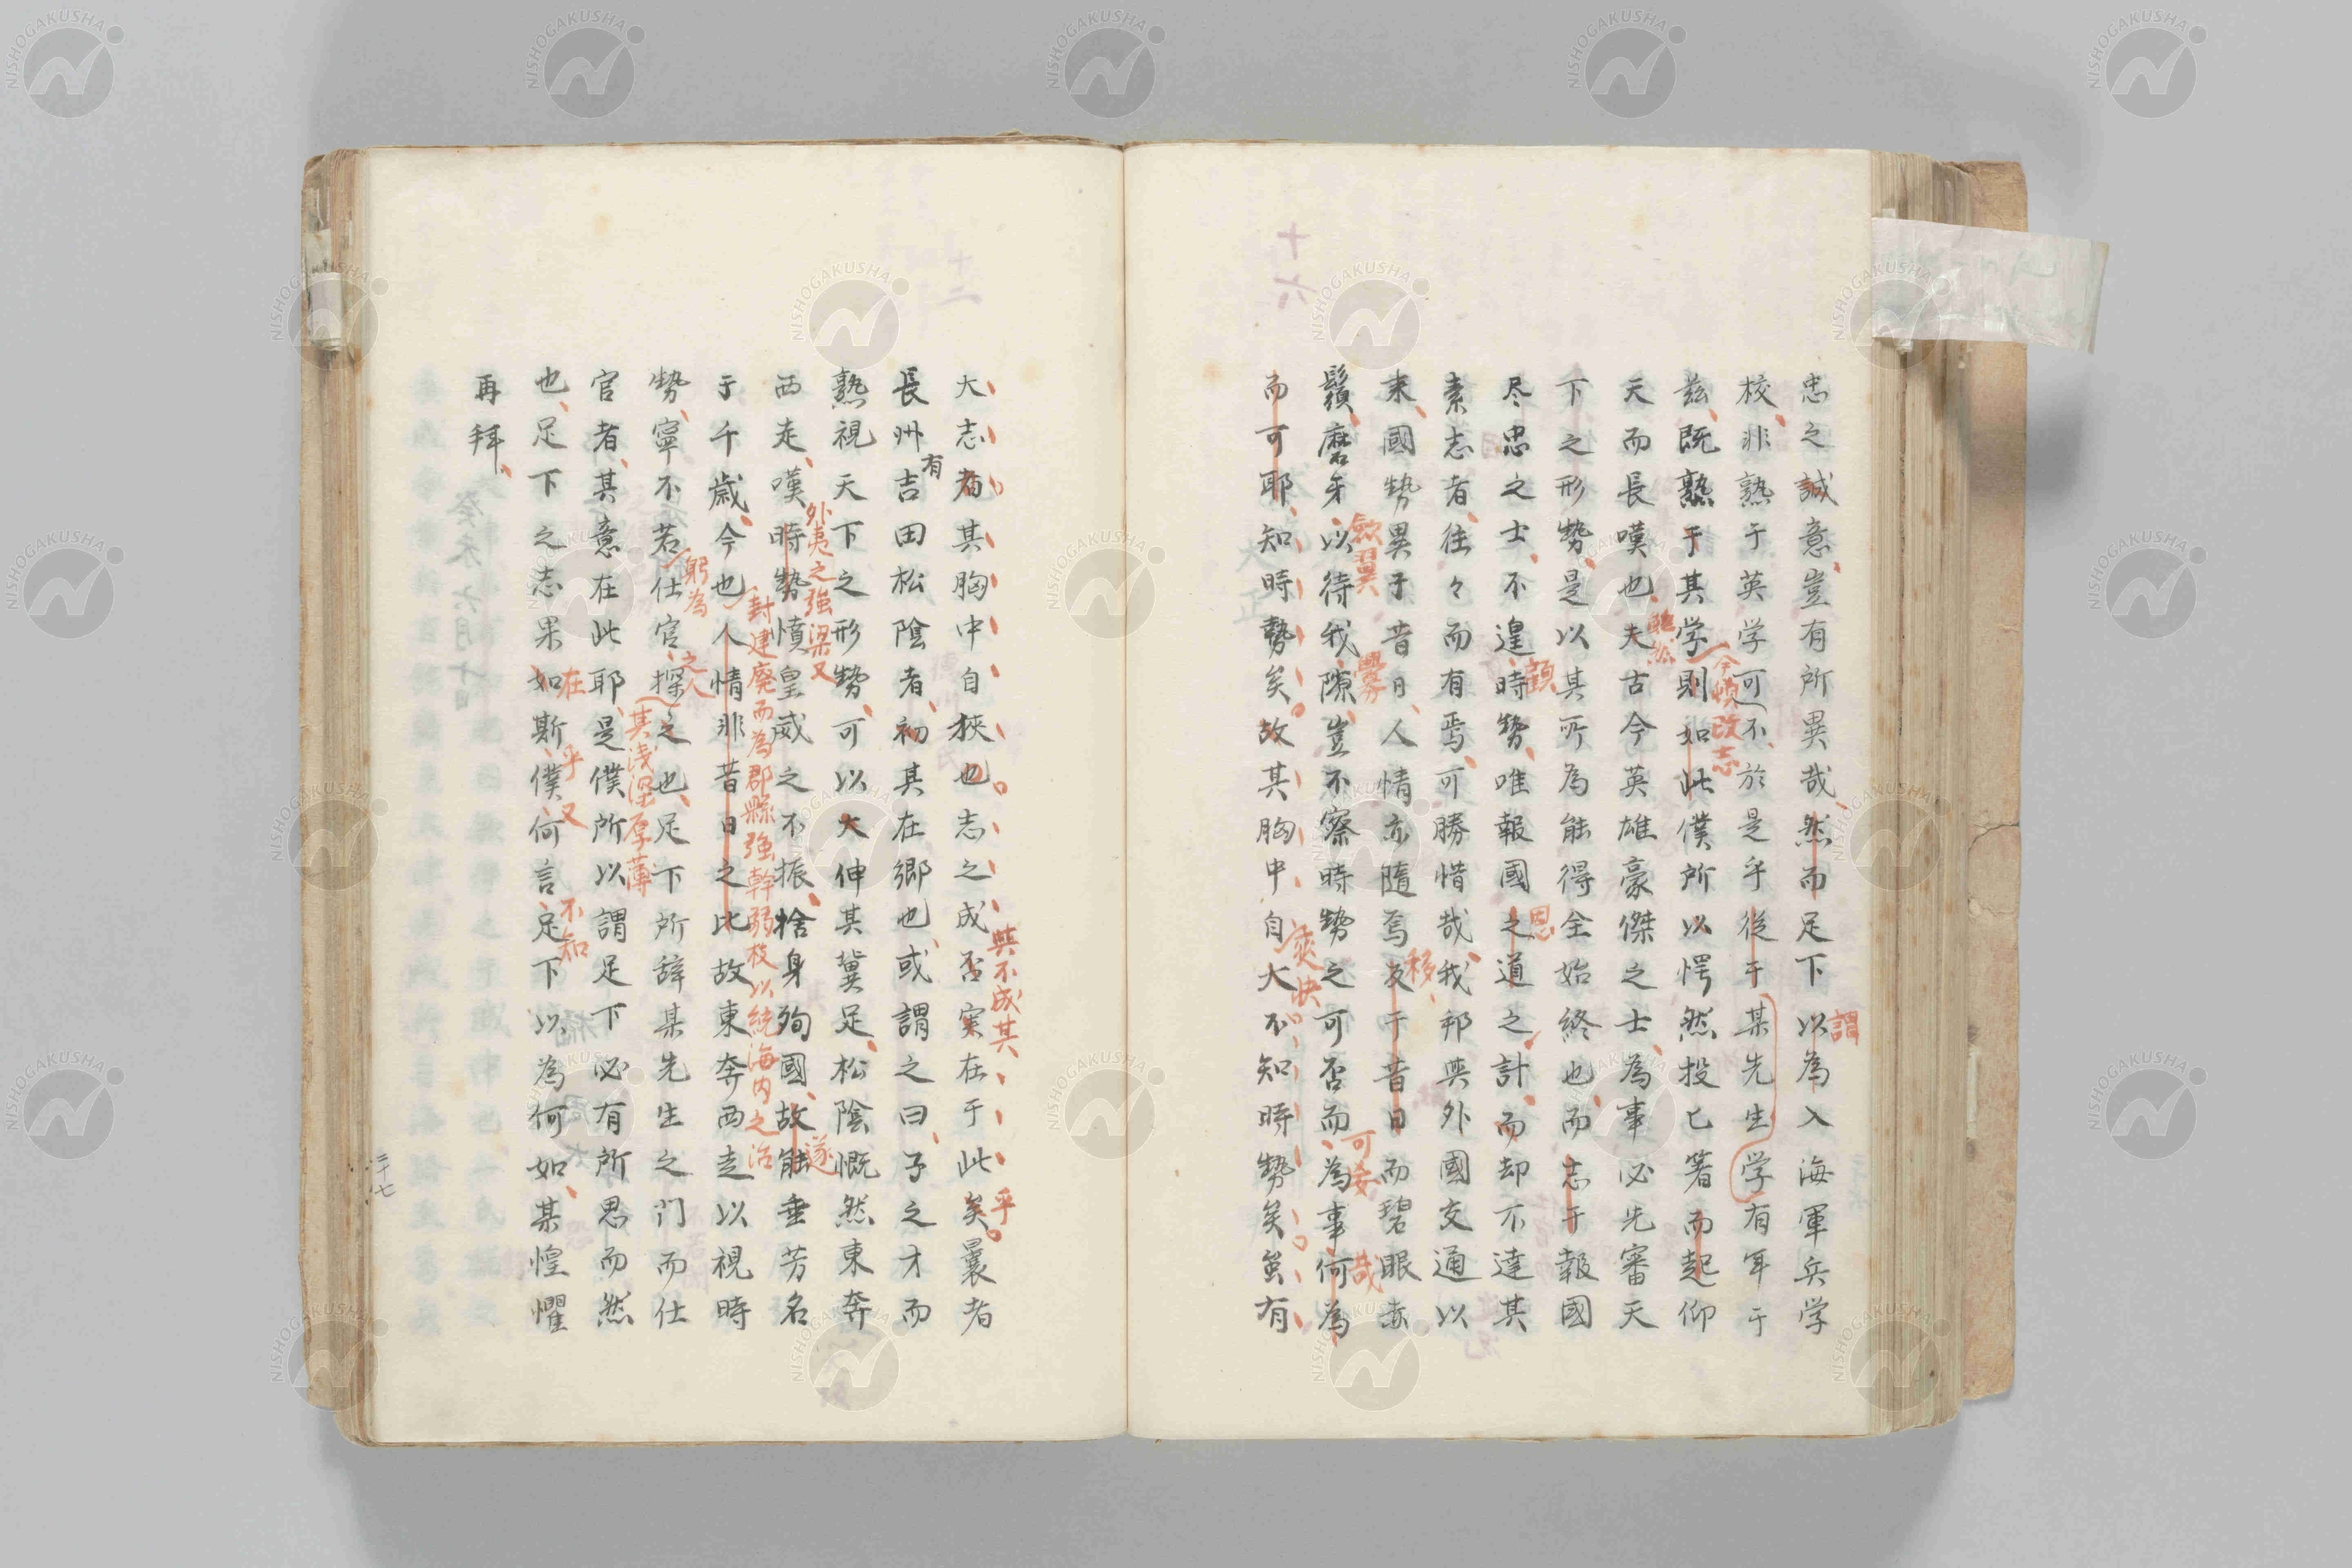 忠之誠意豈有所異哉然而足下以為入海軍兵学
謂
校非熟于英学可不於是乎従于某先生学有年于
今慎改志
茲既熟于其学則如此僕所以愕然投匕箸而起仰
天而長嘆也夫古今英雄豪傑之士為事必先審天
下之形勢是以其所為能得全始終也而志于報國
尽忠之士不遑時勢唯報國之道之計而却不達其
顧
恩
素志者往々而有焉可勝惜哉我邦與外國交通以
来國勢異于昔日人情亦隨焉反于昔日而碧眼赤
移
鬚磨牙以待我隙豈不察時勢之可否而為事何為
斂翼
釁
可妄
哉
而可耶知時勢矣故其胸中自大不知時勢矣虽有
爽快
十六
大志者其胸中自狹也志之成否実在于此矣曩者
與不成其
乎
長州吉田松陰者初其在郷也或謂之曰子之才而
有
熟視天下之形勢可以大伸其冀足松陰慨然東奔
西走嘆時勢憤皇威之不振捨身殉國故能垂芳名
外夷之強梁又
遂
于千歳今也人情非昔日之比故東奔西走以視時
封建廃而為郡縣強幹弱枝以統海内之治
勢寧不若仕官探之也足下所辞某先生之门而仕
躬為
之人
官者其意在此耶是僕所以謂足下必有所思而然
其浅深厚薄
也足下之志果如斯僕何言足下以為何如某惶懼
在
乎
又
不知
再拜
二十七